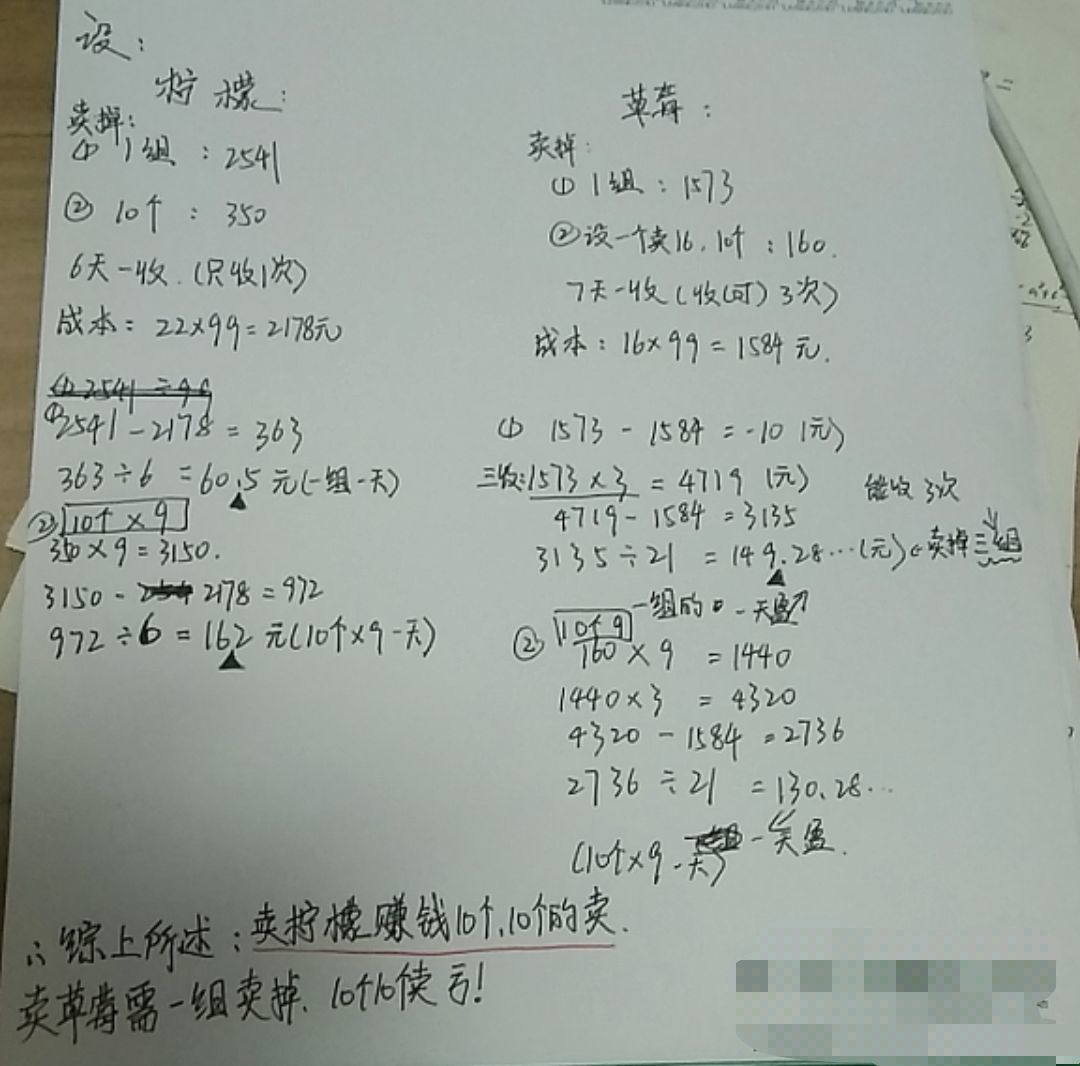 设：
柠檬：
卖掉：
① 1组：2541
② 10个：350
6天一收.(只收1次)
成本：22×99=2178元
① 2541-2178=363
363÷6=60.5元(一组一天)
② 10个×9
350×9=3150.
3150-2178=972
972÷6=162元(10个×9一天)
草莓：
卖掉：
① 1组：1573
②设一个卖16.10个：160.
7天一收(收(可)3次)
成本：16×99=1584元.
① 1573-1584=-10(元)
三收：1573×3=4719(元) 能收3次
4719-1584=3135
3135÷21=149.28…(元)←卖掉三组
一组的 一天盈
② 10个9
160×9=1440
1440×3=4320
4320-1584=2736
2736÷21=130.28…
(10个×9一天) 一天盈.
∴综上所述：卖柠檬赚钱10个,10个的卖.
卖草莓需一组卖掉.10个10个卖亏!